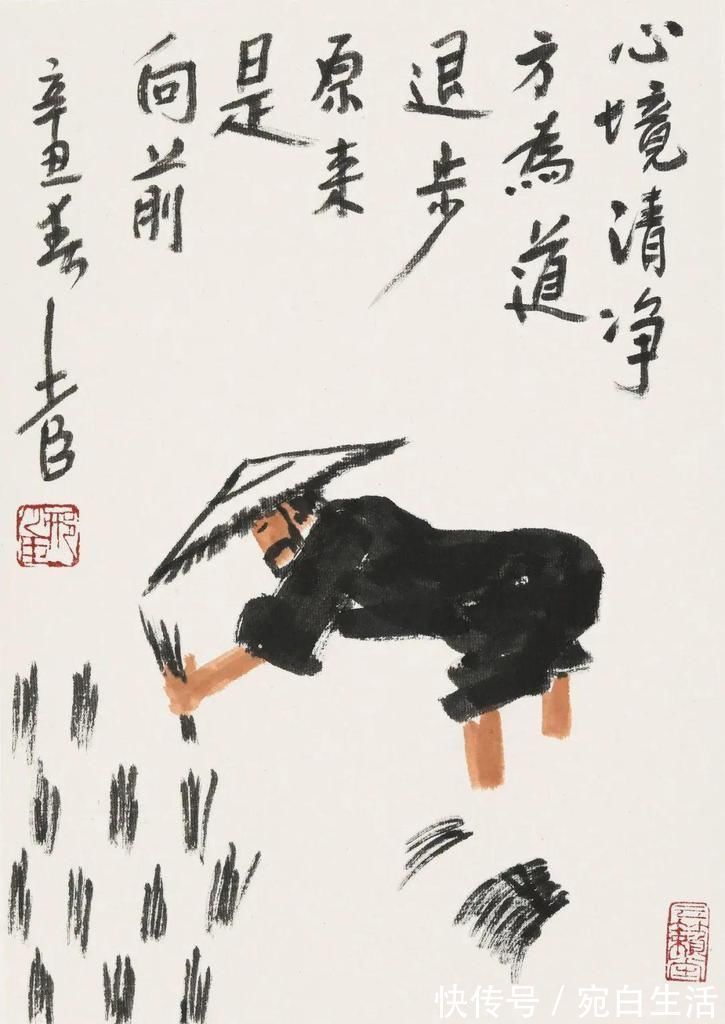 心境清净
方為道
退步
原来
是
向前
辛丑春
快传号 / 宛白生活